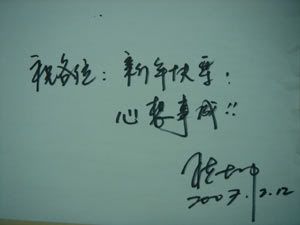 祝各位：新年快乐！
心想事成！！
2007.2.12